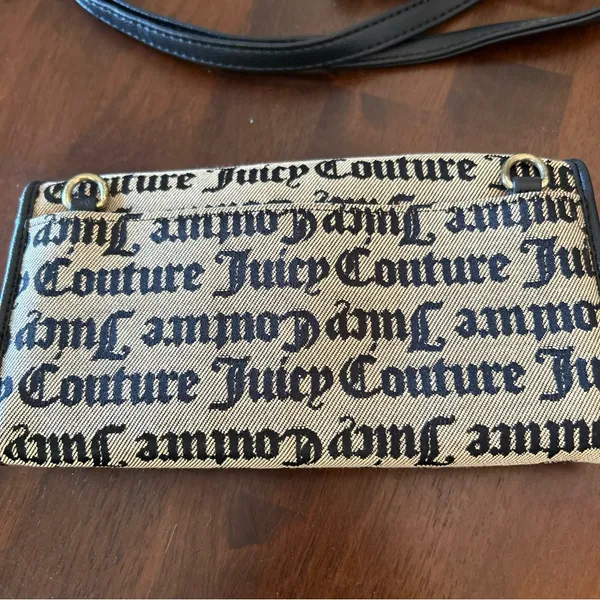 Couture Juicy Couture Jui
Juicy Couture Juicy Coutu
Couture Juicy Couture Jui
Juicy Couture Juicy Couture
Couture Juicy Couture Ju
Juicy Couture Juicy Coutu